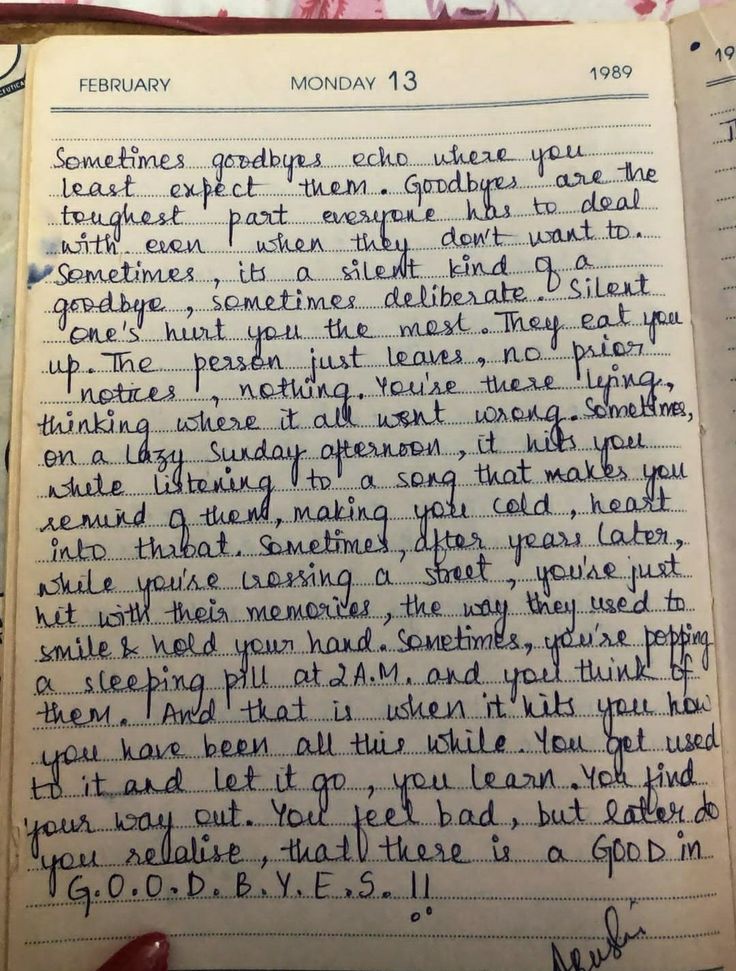 FEBRUARY MONDAY 13 1989
19
Sometimes goodbyes echo where you
least expect them. Goodbyes are the
toughest part everyone has to deal
with even when they don't want to.
Sometimes, its a silent kind of a
goodbye, sometimes deliberate. Silent
one's hurt you the most. They eat you
up. The person just leaves, no prior
notices, nothing. You're there lying,
thinking where it all went wrong. Sometimes,
on a lazy Sunday afternoon, it hits you
while listening to a song that makes you
remind of them, making you cold, heart
into throat. Sometimes, after years later,
while you're crossing a street, you're just
hit with their memories, the way they used to
smile & hold your hand. Sometimes, you're popping
a sleeping pill at 2 A.M. and you think of
them. And that is when it hits you how
you have been all this while. You get used
to it and let it go, you learn. You find
your way out. You feel bad, but later do
you relalise, that there is a GOOD in
G.O.O.D.B.Y.E.S. !!